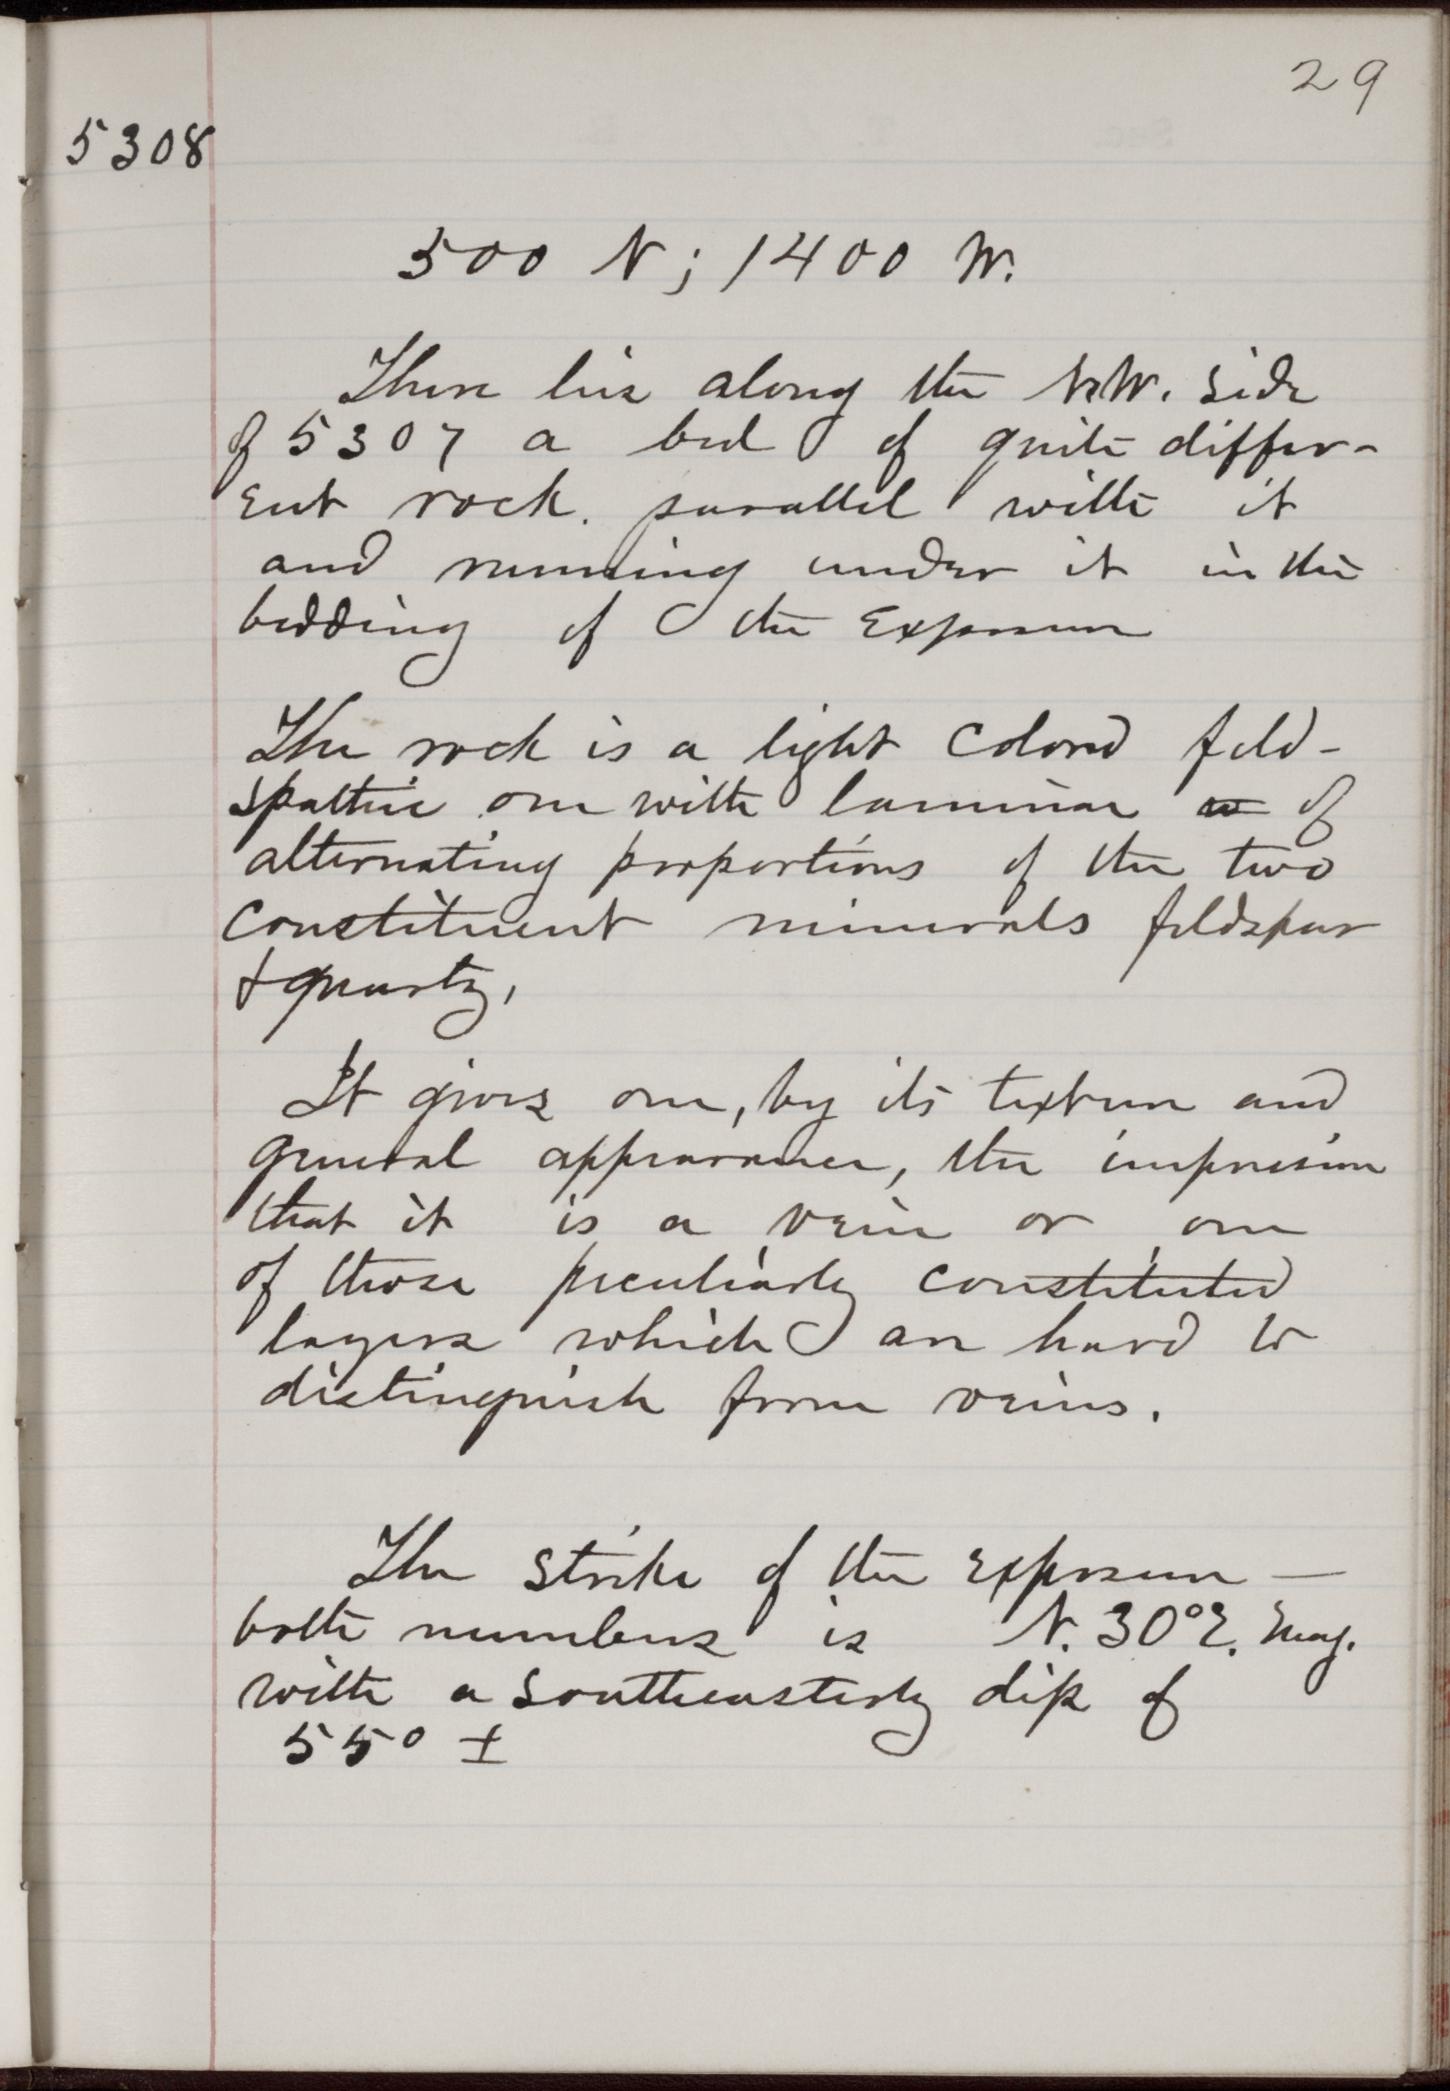 29
5308
500 N; 1400 W.
There lies along the N.W. side
of 5307 a bed of quite differ-
ent rock. parallel with it
and running under it in the
bedding of the Exposure
The rock is a light colored feld-
spathic one with laminae of
alternating proportions of the two
constituent minerals feldspar
+ quartz,
It gives one, by its texture and
general appearance, the impression
that it is a vein or one
of those peculiarly constituted
layers which are hard to
distinguish from veins.
The strike of the exposure —
both numbers is N. 30° E. Mag.
with a southeasterly dip of
55° ±